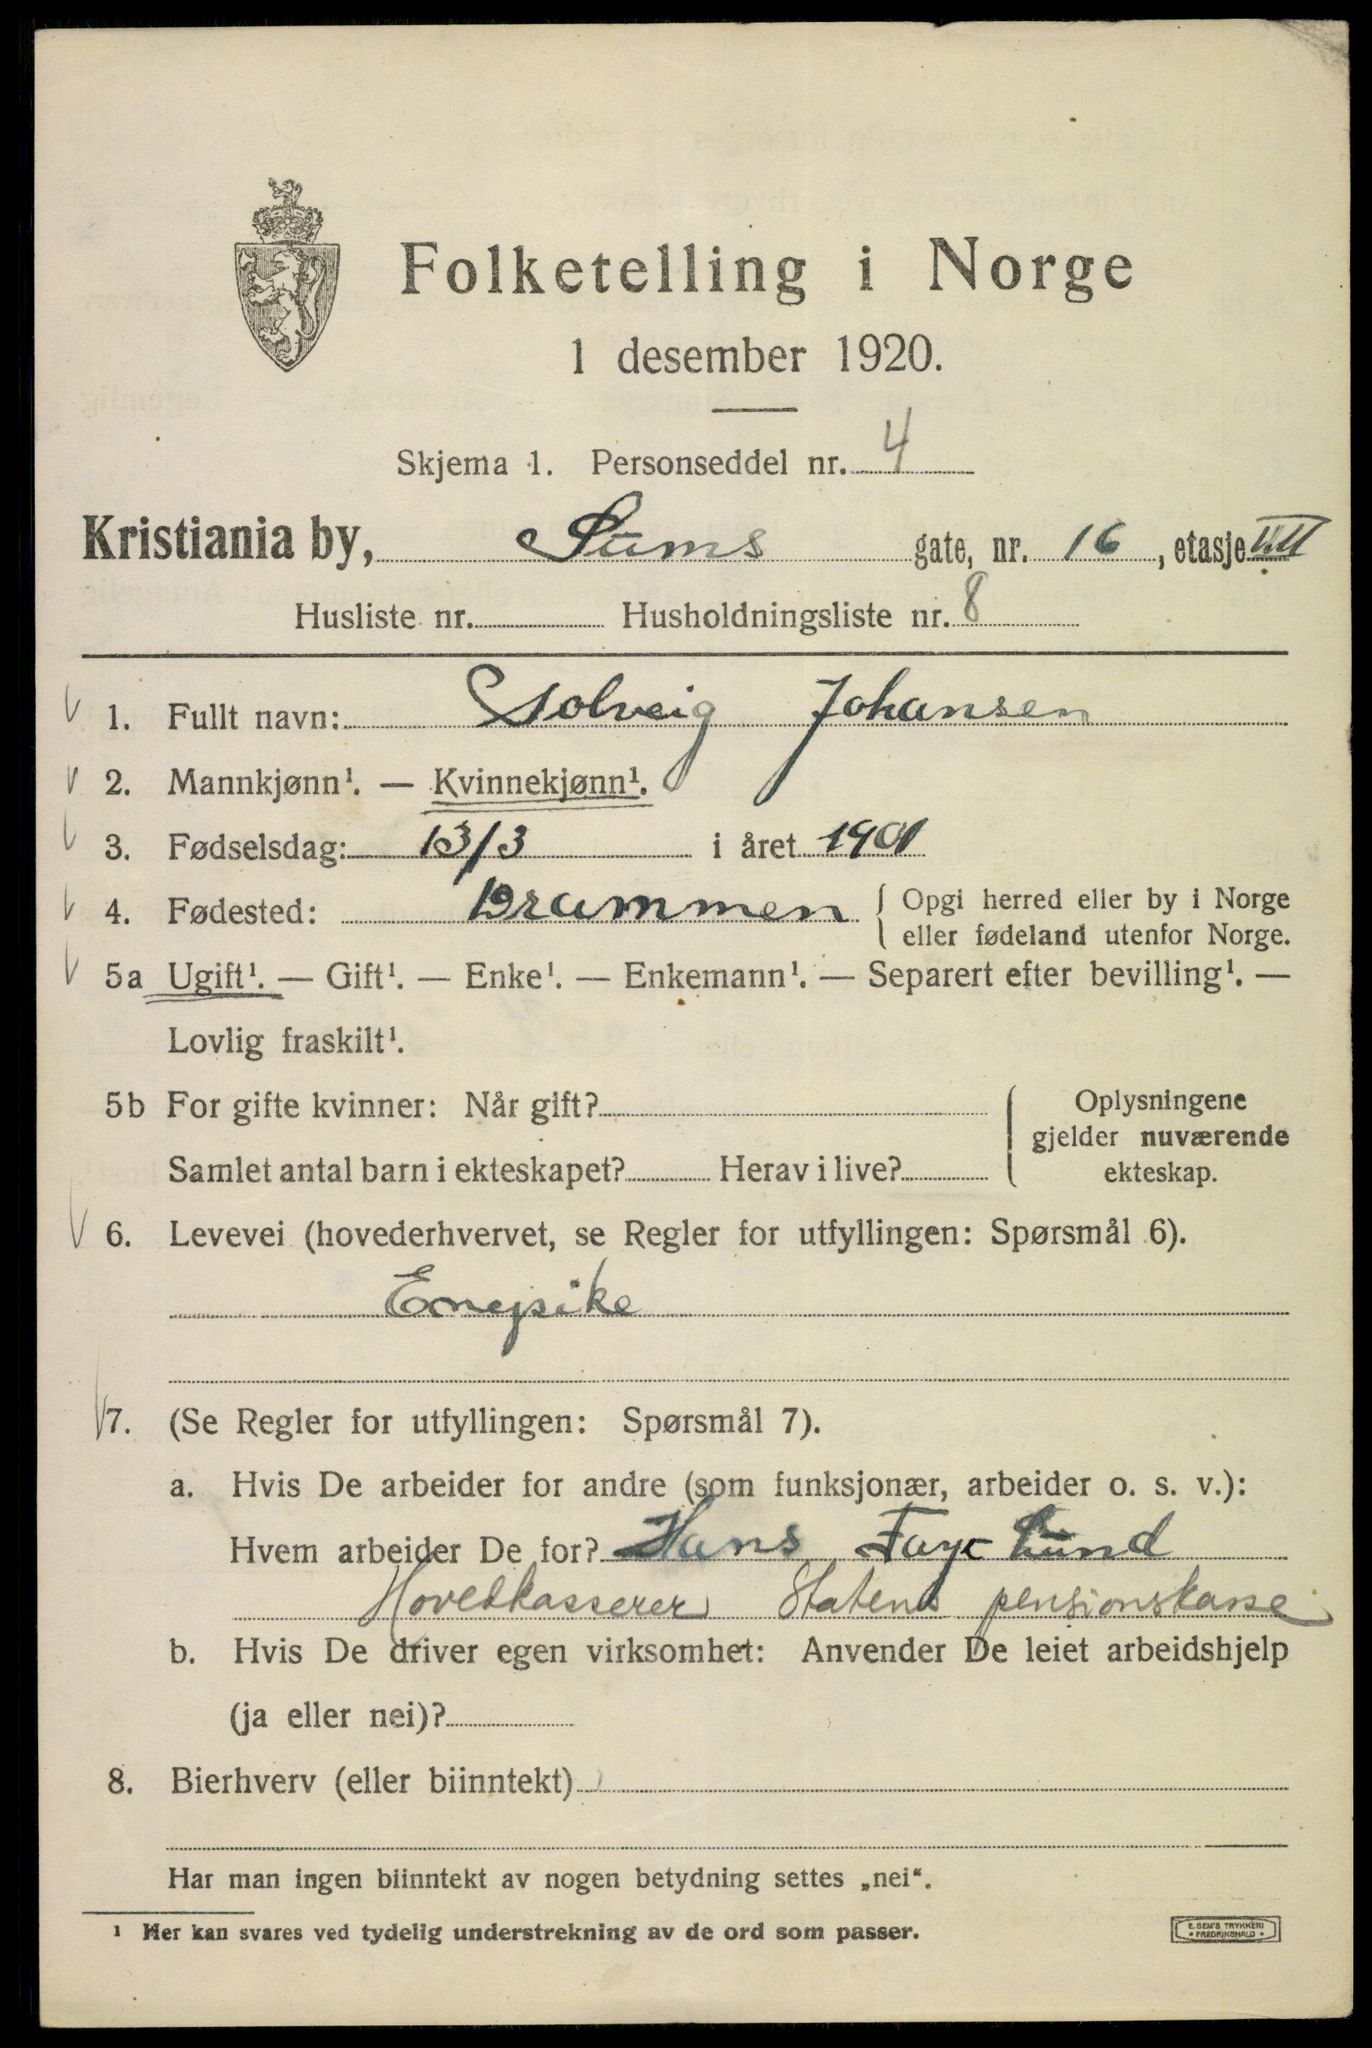 Folketelling i Norge
1 desember 1920.
Skjema 1. Personseddel nr. 4
Kristiania by, Sums gate, nr. 16, etasje
Husliste nr. Husholdningsliste nr. 8
1. Fullt navn: Solveig Johansen
2. Mannkjønn¹. — Kvinnekjønn¹.
3. Fødselsdag: 13/3 i året 1901
4. Fødested: Drammen { Opgi herred eller by i Norge
eller fødeland utenfor Norge.
5a Ugift¹. — Gift¹. — Enke¹. — Enkemann¹. — Separert efter bevilling¹. —
Lovlig fraskilt¹.
5b For gifte kvinner: Når gift? { Oplysningene
gjelder nuværende
Samlet antal barn i ekteskapet? Herav i live? ekteskap.
6. Levevei (hovederhvervet, se Regler for utfyllingen: Spørsmål 6).
Enepike
7. (Se Regler for utfyllingen: Spørsmål 7).
a. Hvis De arbeider for andre (som funksjonær, arbeider o. s. v.):
Hvem arbeider De for? Hans Faye Lund
Hovedkasserer Statens pensionskasse
b. Hvis De driver egen virksomhet: Anvender De leiet arbeidshjelp
(ja eller nei)?
8. Bierhverv (eller biinntekt)
Har man ingen biinntekt av nogen betydning settes „nei“.
¹ Her kan svares ved tydelig understrekning av de ord som passer.
E. SEM'S TRYKKERI
• FREDRIKSHALD •